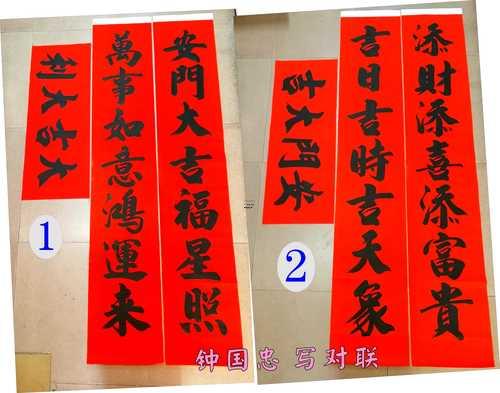 安門大吉福星照
萬事如意鴻運来
大吉大利
1
添財添喜添富貴
吉日吉時吉天象
安門大吉
2
钟国忠 写对联